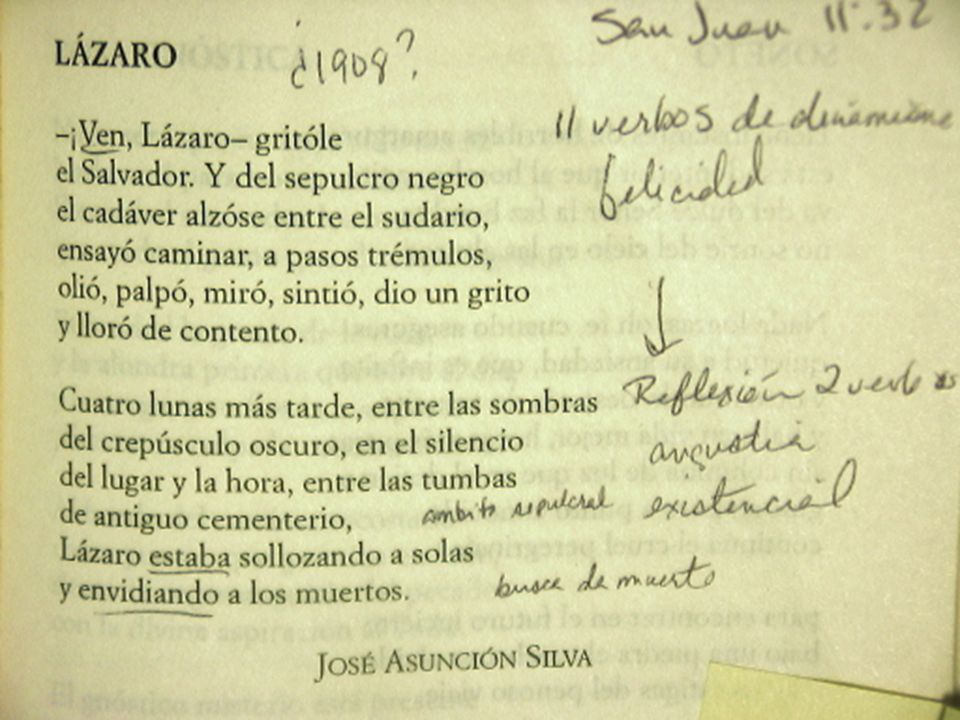 San Juan 11:32
LÁZARO
¿1908?
11 verbos de dinamismo
felicidad
–¡Ven, Lázaro– gritóle
el Salvador. Y del sepulcro negro
el cadáver alzóse entre el sudario,
ensayó caminar, a pasos trémulos,
olió, palpó, miró, sintió, dio un grito
y lloró de contento.
Cuatro lunas más tarde, entre las sombras
del crepúsculo oscuro, en el silencio
del lugar y la hora, entre las tumbas
de antiguo cementerio,
Lázaro estaba sollozando a solas
y envidiando a los muertos.
Reflexión 2 verbos
angustia
existencial
ambito sepulcral
busca de muerto
JOSÉ ASUNCIÓN SILVA